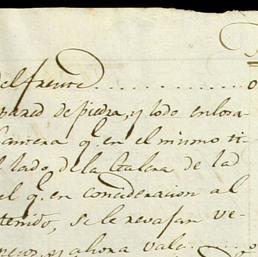 del frente
pared de piedra, y lodo en
q.e en el mismo ti
l lado de la de la
el q.e en concideracion al
tenido, se le revasan ve
y ahora vale